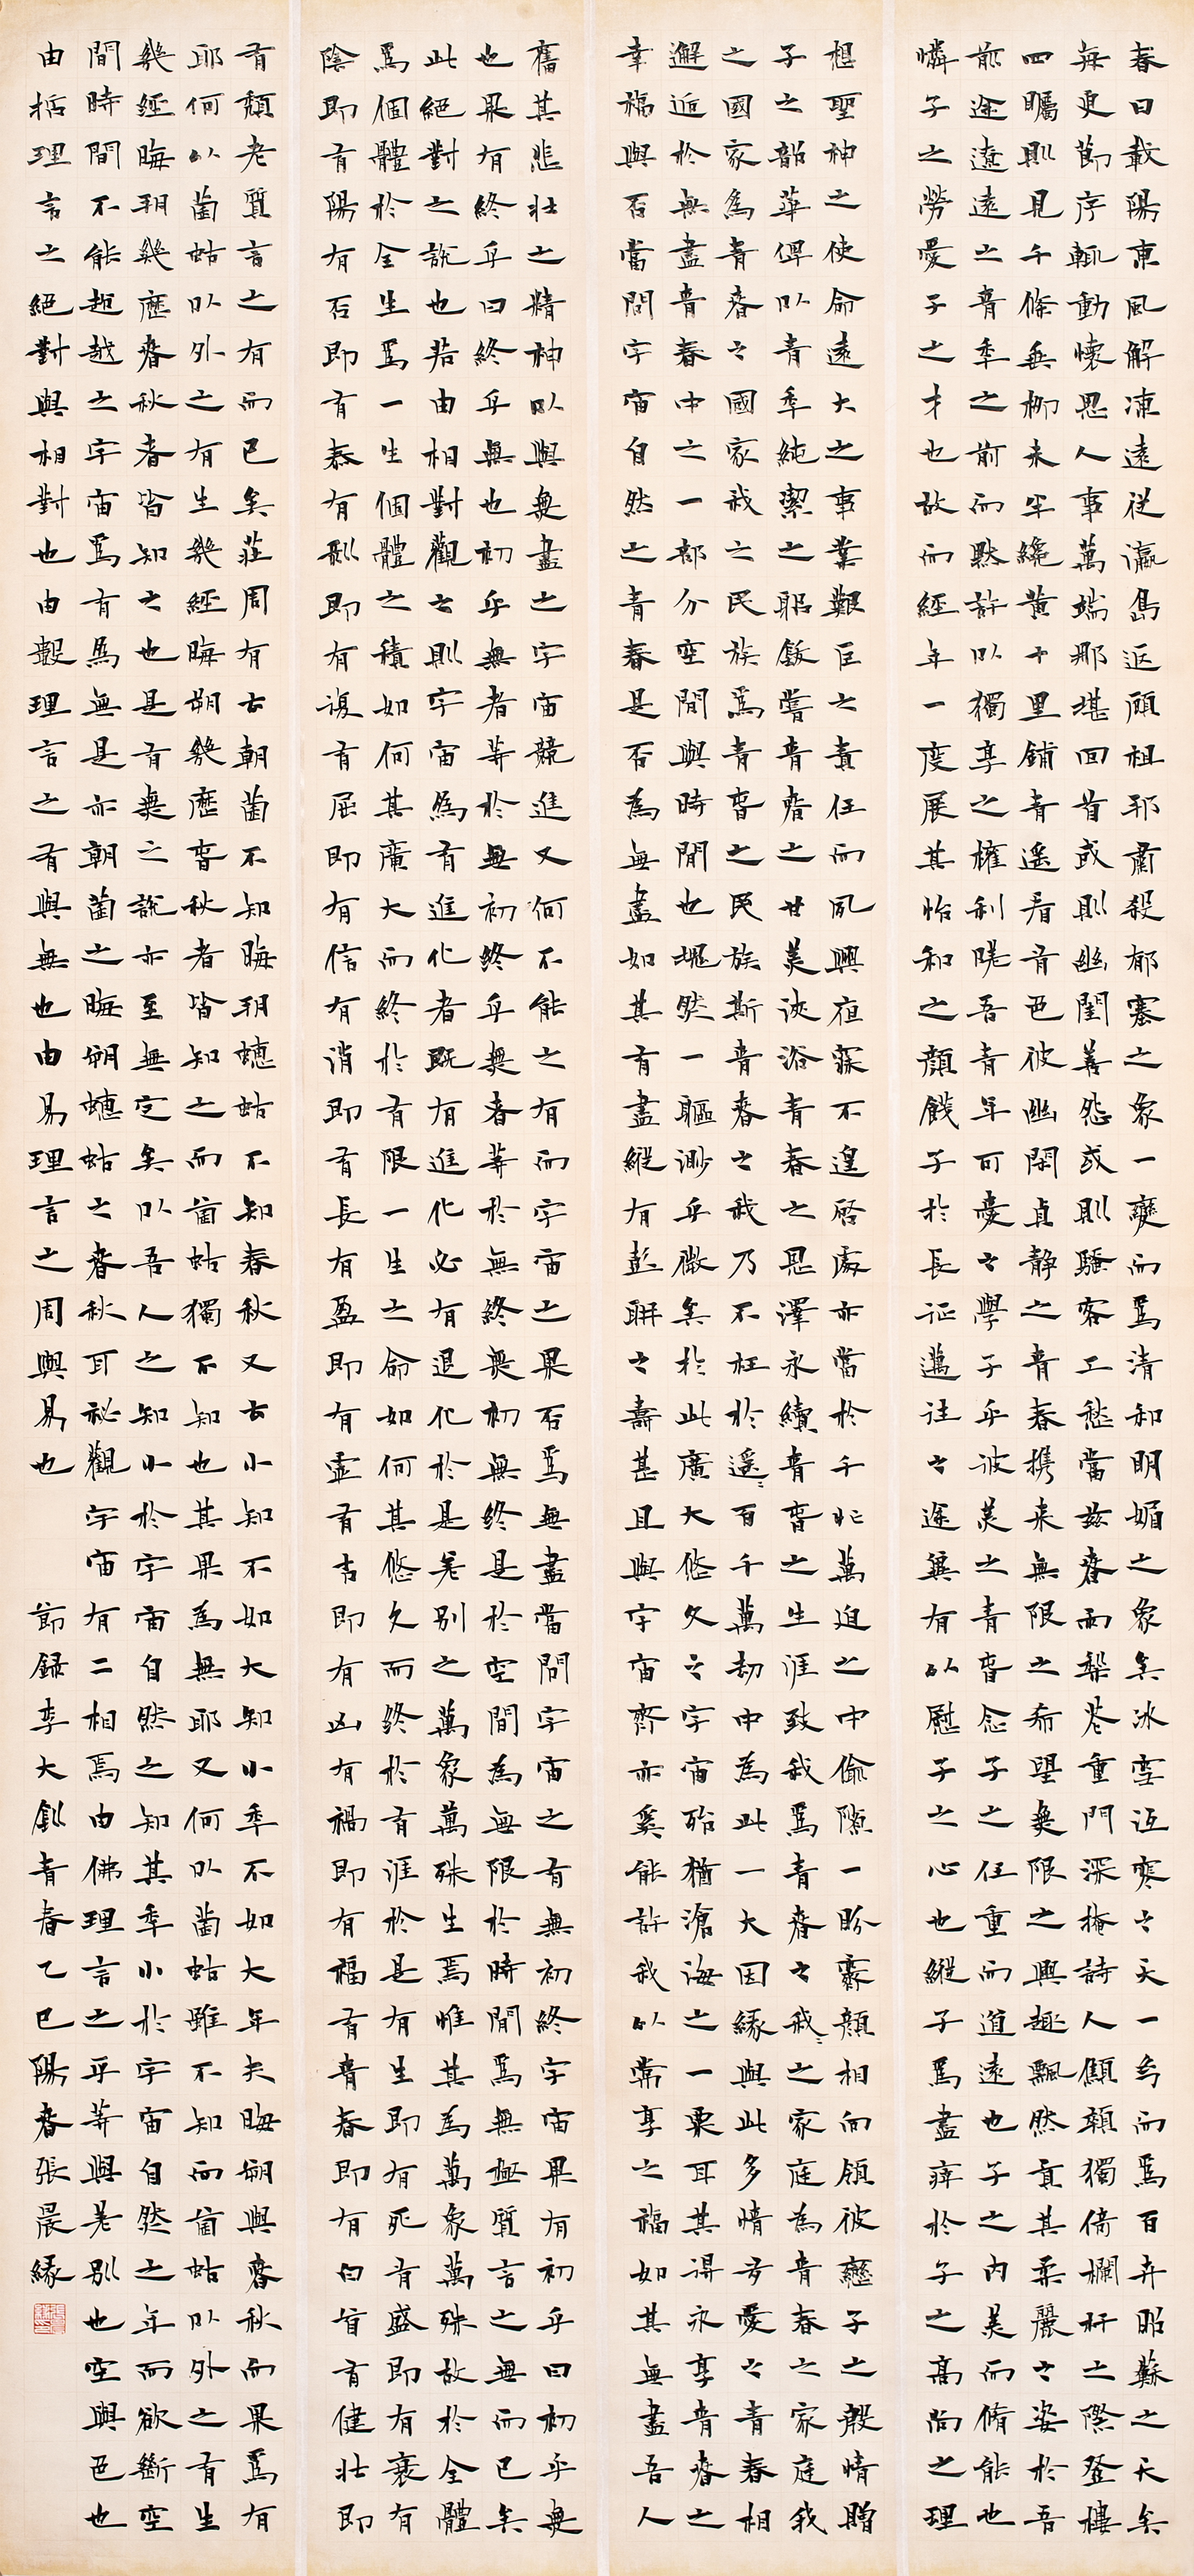 春日載陽東風解凍遠從瀛島返顧祖邦肅殺郁塞之象一變而爲清和明媚之象矣冰雪沍寒之天一幻而爲百卉昭蘇之天矣
每更節序輒動懷思人事萬端那堪回首或則幽閨善怨或則騷客工愁當茲春雨梨花重門深掩詩人顦顇獨倚欄杆之際登樓
四矚則見千條垂柳未半纔黃十里鋪青遙看有色彼幽閑貞靜之青春携來無限之希望無限之興趣飄然貢其柔麗之姿於吾
前途遼遠之青年之前而默許以獨享之權利嗟吾青年可愛之學子乎彼美之青春念子之任重而道遠也子之內美而脩能也
憐子之勞愛子之才也故而經年一度展其怡和之顏餞子於長征邁往之途冀有以慰子之心也縱子爲盡瘁於子之高尚之理
想聖神之使命遠大之事業艱巨之責任而夙興夜寐不遑啓處亦當於千忙萬迫之中偷隙一盼霽顏相向領彼戀子之殷情贈
子之韶華俾以青年純潔之躬飫嘗青春之甘美浹浴青春之恩澤永續青春之生涯致我爲青春之我々之家庭為青春之家庭我
之國家爲青春之國家我之民族爲青春之民族斯青春之我乃不枉於遥々百千萬劫中為此一大因緣與此多情多愛之青春相
邂逅於無盡青春中之一部分空間與時間也塊然一軀渺乎微矣於此廣大悠久之宇宙殆猶滄海之一粟耳其得永享青春之
幸福與否當問宇宙自然之青春是否為無盡如其有盡縱有彭聃之壽甚且與宇宙齊亦奚能許我以常享之福如其無盡吾人
奮其悲壯之精神以與無盡之宇宙競進又何不能之有而宇宙之果否爲無盡當問宇宙之有無初終宇宙果有初乎曰初乎無
也果有終乎曰終乎無也初乎無者等於無初終乎無者等於無終無初無終是於空間為無限於時間爲無極質言之無而已矣
此絕對之說也若由相對觀之則宇宙爲有進化者既有進化必有退化於是差別之萬象萬殊生焉惟其為萬象萬殊故於全體
爲個體於全生爲一生個體之積如何其廣大而終於有限一生之命如何其悠久而終於有涯於是有生即有死有盛即有衰有
陰即有陽有否即有泰有剝即有復有屈即有信有消即有長有盈即有虛有吉即有凶有禍即有福有青春即有白首有健壯即
有頹老質言之有而已矣莊周有云朝菌不知晦朔蟪蛄不知春秋又云小知不如大知小年不如大年夫晦朔與春秋而果爲有
耶何以菌蛄以外之有生幾經晦朔幾歷春秋者皆知之而菌蛄獨不知也其果為無耶又何以菌蛄雖不知而菌蛄以外之有生
幾經晦朔幾歷春秋者皆知之也是有無之說亦至無定矣以吾人之知小於宇宙自然之知其年小於宇宙自然之年而欲斷空
間時間不能超越之宇宙爲有爲無是亦朝菌之晦朔蟪蛄之春秋耳秘觀宇宙有二相焉由佛理言之平等與差別也空與色也
由哲理言之絕對與相對也由數理言之有與無也由易理言之周與易也 節録李大釗青春乙巳陽春張晨緣